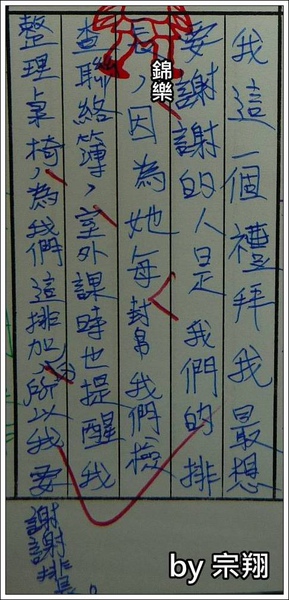 我這一個禮拜我最想
要謝謝的人是我們的排
長,因為她每封帛我們檢
查聯絡簿,室外課時也提醒我
整理桌椅,為我們這排加分所以我要
謝謝排長。
錦樂
by 宗翔